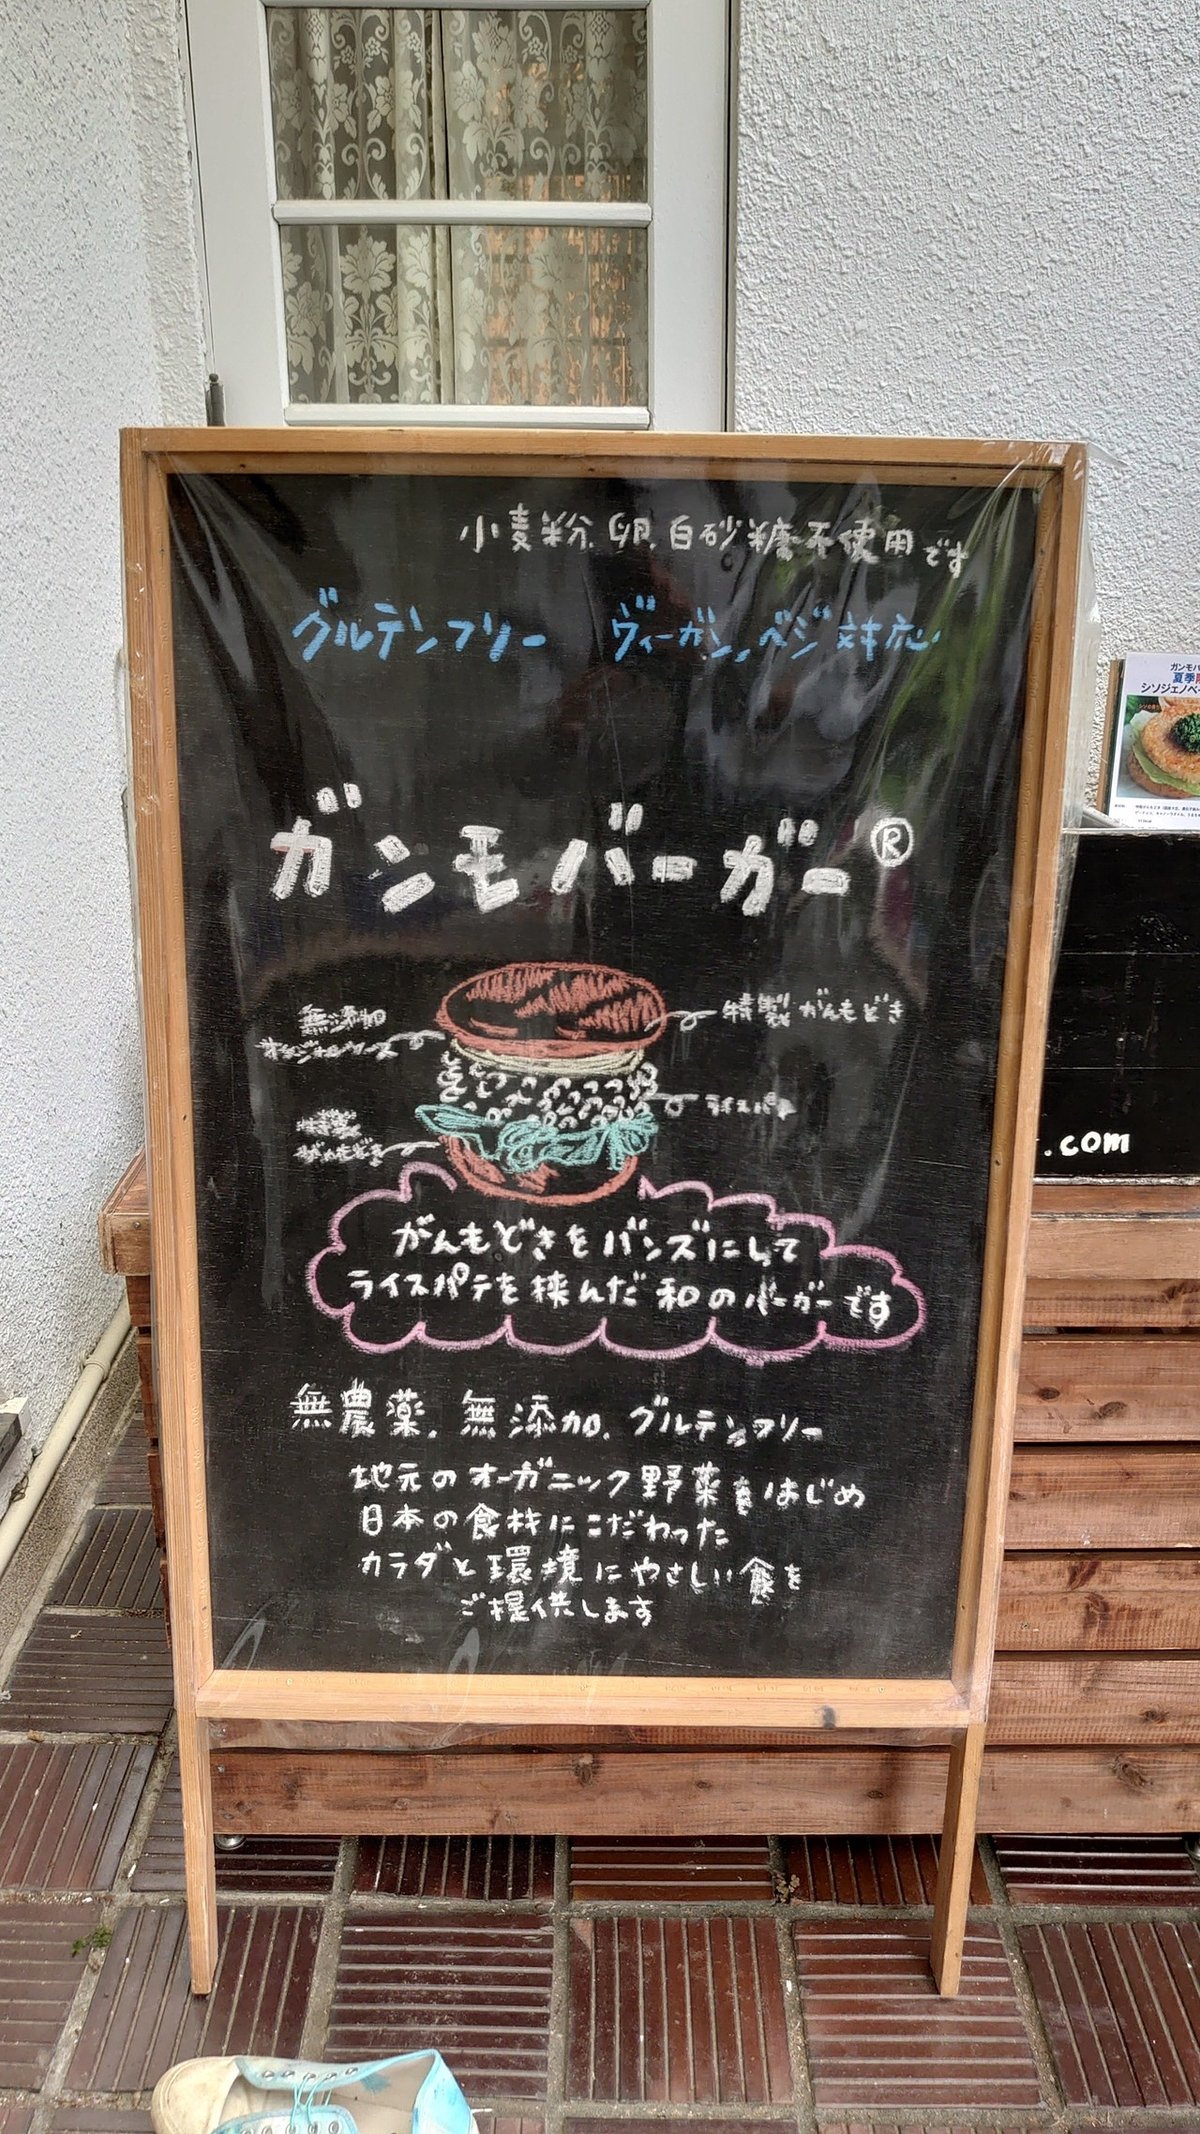 小麦粉、卵、白砂糖不使用です
グルテンフリー ヴィーガン、ベジ対応
ガンモバーガー®
無添加
オリジナルソース
特製がんもどき
ライスパテ
特製
がんもどき
がんもどきをバンズにして
ライスパテを挟んだ和のバーガーです
無農薬、無添加、グルテンフリー
地元のオーガニック野菜をはじめ
日本の食材にこだわった
カラダと環境にやさしい食を
ご提供します
ガンモバ
夏季
シソジェノベ
.com